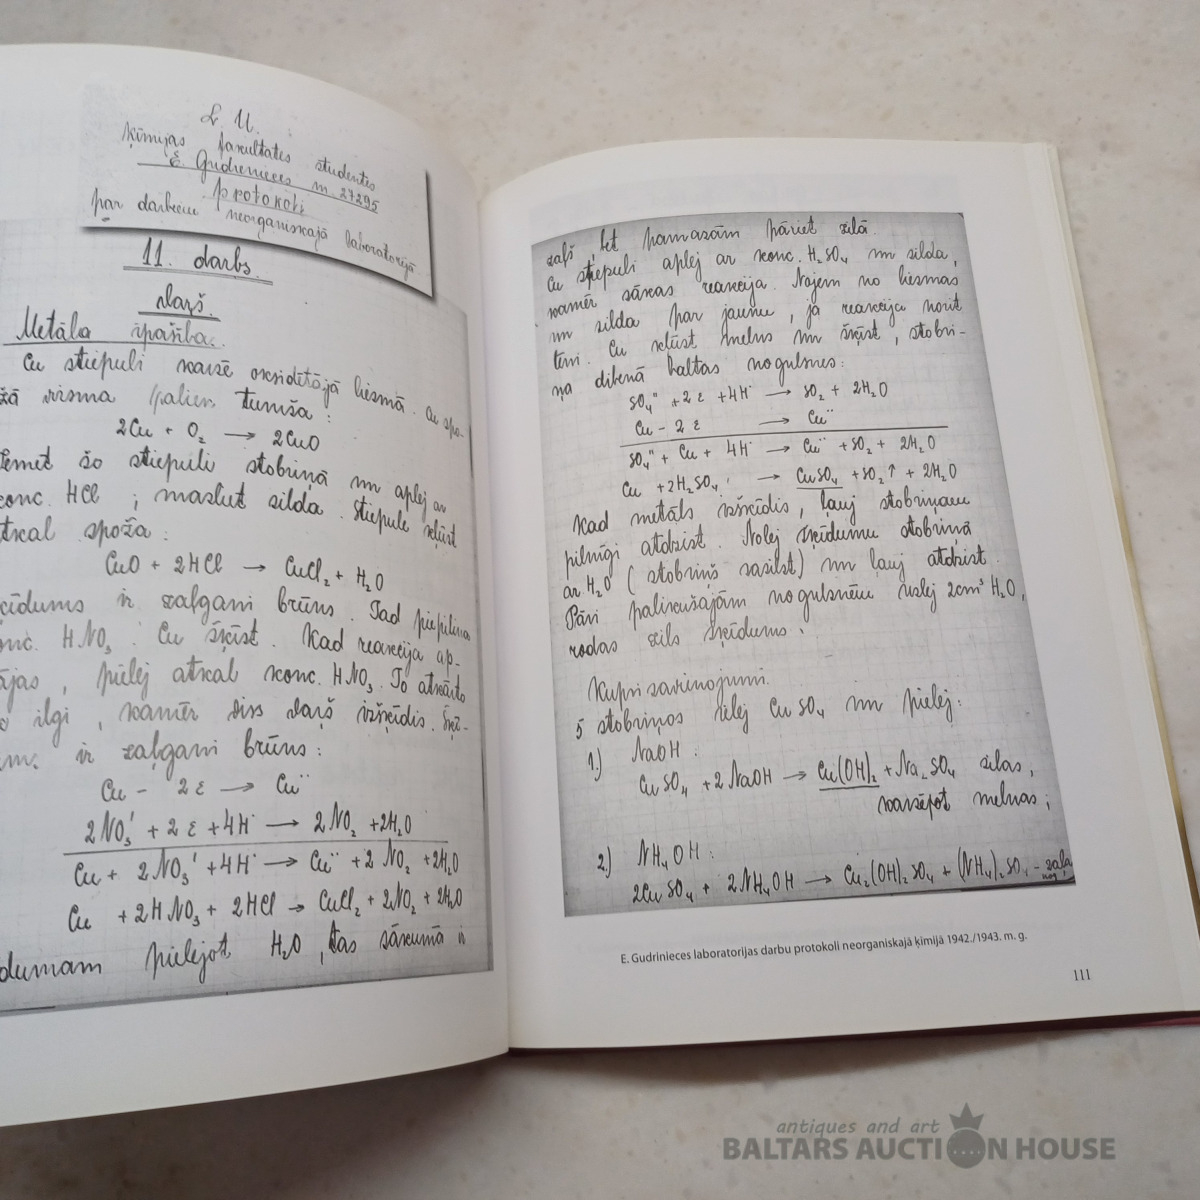 L. U.
Ķīmijas fakultātes študentes
E. Gudrinieces m. 27295
protokoli
par darbiem neorganiskajā laboratorijā
11. darbs.
Varš.
Metāla īpašība.
Cu stiepuli karsē oksidētājā liesmā. Cu spo-
žā virsma paliek tumša:
2Cu + O₂ → 2CuO
šo stiepuli stobriņā un aplej ar
konc. HCl ; mazliet silda. Stiepule kļūst
atkal spoža:
CuO + 2HCl → CuCl₂ + H₂O
ir zaļgani brūns. Tad piepilina
konc. HNO₃. Cu šķīst. Kad reakcija ap-
, pielej atkal konc. HNO₃. To atkārto
ilgi, kamēr viss varš izšķīdis. Šķī-
ir zaļgani brūns:
Cu - 2ε → Cu¨
2NO₃' + 2ε + 4H˙ → 2NO₂ + 2H₂O
Cu + 2NO₃' + 4H˙ → Cu¨ + 2NO₂ + 2H₂O
Cu + 2HNO₃ + 2HCl → CuCl₂ + 2NO₂ + 2H₂O
dumam pielejot H₂O, tas sākumā ir
zaļš, bet pamazām pāriet zilā.
Cu stiepuli aplej ar konc. H₂SO₄ un silda,
kamēr sākas reakcija. Noņem no liesmas
un silda par jaunu, ja reakcija norit
lēni. Cu kļūst melns un šķīst, stobri-
ņa dibenā baltas nogulsnes:
SO₄" + 2ε + 4H˙ → SO₂ + 2H₂O
Cu - 2ε → Cu¨
SO₄" + Cu + 4H˙ → Cu¨ + SO₂ + 2H₂O
Cu + 2H₂SO₄ → CuSO₄ + SO₂↑ + 2H₂O
Kad metāls izšķīdis, ļauj stobriņam
pilnīgi atdzist. Nolej šķīdumu stobriņā
ar H₂O (stobriņš sasilst) un ļauj atdzist.
Pāri palikušajām nogulsnēm uzlej 2cm³ H₂O,
rodas zils šķīdums.
Kupri savienojumi.
5 stobriņos ielej CuSO₄ un pielej:
1.) NaOH:
CuSO₄ + 2NaOH → Cu(OH)₂ + Na₂SO₄ zilas,
karsējot melnas;
2.) NH₄OH:
2CuSO₄ + 2NH₄OH → Cu₂(OH)₂SO₄ + (NH₄)₂SO₄ - zaļa
nog.
E. Gudrinieces laboratorijas darbu protokoli neorganiskajā ķīmijā 1942./1943. m. g.
111
antiques and art
BALTARS AUCTION HOUSE